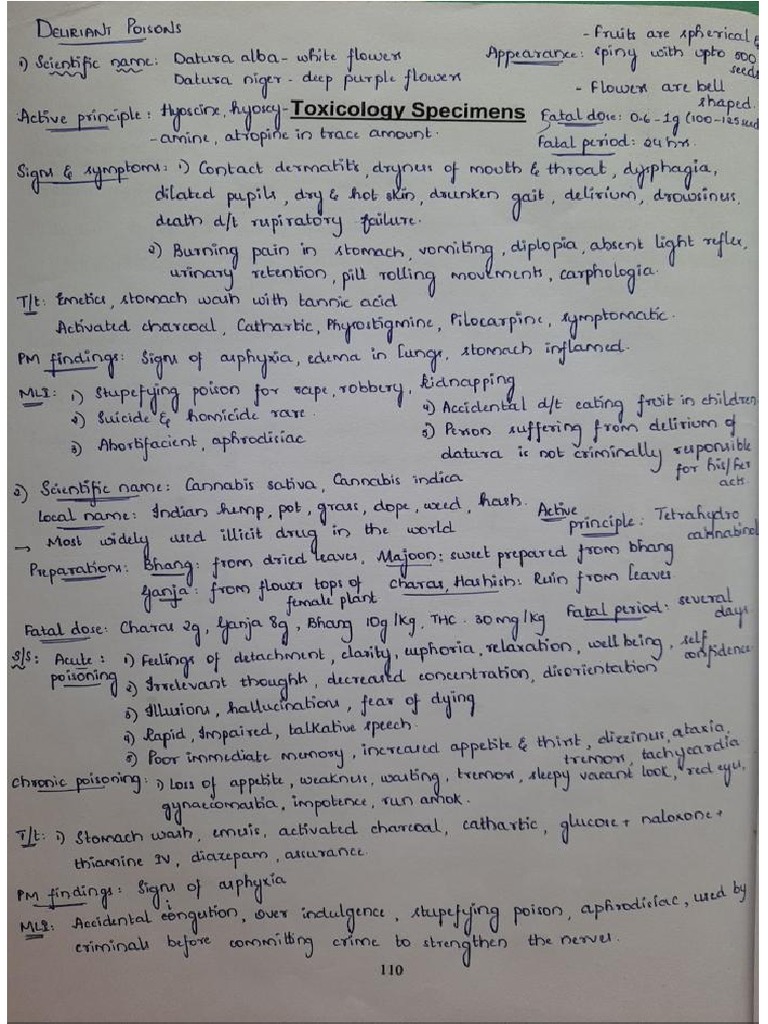 DELIRIANT POISONS
- Fruits are spherical &
1) Scientific name: Datura alba - white flowers
Appearance: spiny with upto 500 seeds
Datura niger - deep purple flowers
- Flowers are bell shaped.
Active principle: Hyoscine, hyoscy-
Toxicology Specimens
-amine, atropine in trace amount.
Fatal dose: 0.6-1g (100-125 seed
Fatal period: 24 hrs.
Signs & symptoms: 1) Contact dermatitis, dryness of mouth & throat, dysphagia,
dilated pupils, dry & hot skin, drunken gait, delirium, drowsiness,
death d/t respiratory failure.
2) Burning pain in stomach, vomiting, diplopia, absent light reflex,
urinary retention, pill rolling movements, carphologia.
T/t: Emetics, stomach wash with tannic acid
Activated charcoal, Cathartic, Phyrostigmine, Pilocarpine, symptomatic.
PM findings: Signs of asphyxia, edema in lungs, stomach inflamed.
MLI: 1) Stupefying poison for rape, robbery, kidnapping
2) Suicide & homicide rare.
3) Abortifacient, aphrodisiac
4) Accidental d/t eating fruit in children
5) Person suffering from delirium of
datura is not criminally responsible
for his/her acts.
2) Scientific name: Cannabis sativa, Cannabis indica
Local name: Indian hemp, pot, grass, dope, weed, hash.
Active principle: Tetrahydro cannabinol
→ Most widely used illicit drug in the world
Preparations: Bhang: from dried leaves, Majoon: sweet prepared from bhang
Ganja: from flower tops of female plant
Charas, Hashish: Resin from leaves
Fatal dose: Charas 2g, Ganja 8g, Bhang 10g/kg, THC. 30mg/kg
Fatal period: several days.
S/S: Acute poisoning: 1) Feelings of detachment, clarity, euphoria, relaxation, well being, self confidence
2) Irrelevant though, decreased concentration, disorientation
3) Illusions, hallucinations, fear of dying
4) Rapid, Impaired, talkative speech.
5) Poor immediate memory, increased appetite & thirst, dizziness, ataxia,
tremors, tachycardia
Chronic poisoning: 1) Loss of appetite, weakness, wasting, tremors, sleepy vacant look, red eyes,
gynaecomastia, impotence, run amok.
T/t: 1) Stomach wash, emesis, activated charcoal, cathartic, glucose + naloxone +
thiamine IV, diazepam, assurance.
PM findings: Signs of asphyxia
MLI: Accidental congestion, over indulgence, stupefying poison, aphrodisiac, used by
criminals before committing crime to strengthen the nerves.
110